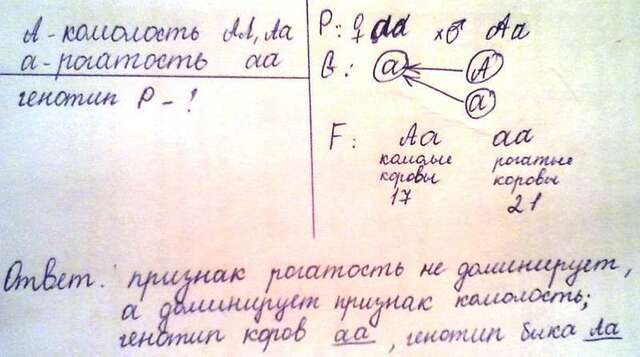 А - комолость АА, Аа
а - рогатость аа
генотип Р - ?
Р: ♀ аа × ♂ Аа
G: а А
а
F: Аа аа
комолые рогатые
коровы коровы
17 21
Ответ: признак рогатость не доминирует,
а доминирует признак комолость;
генотип коров аа, генотип быка Аа